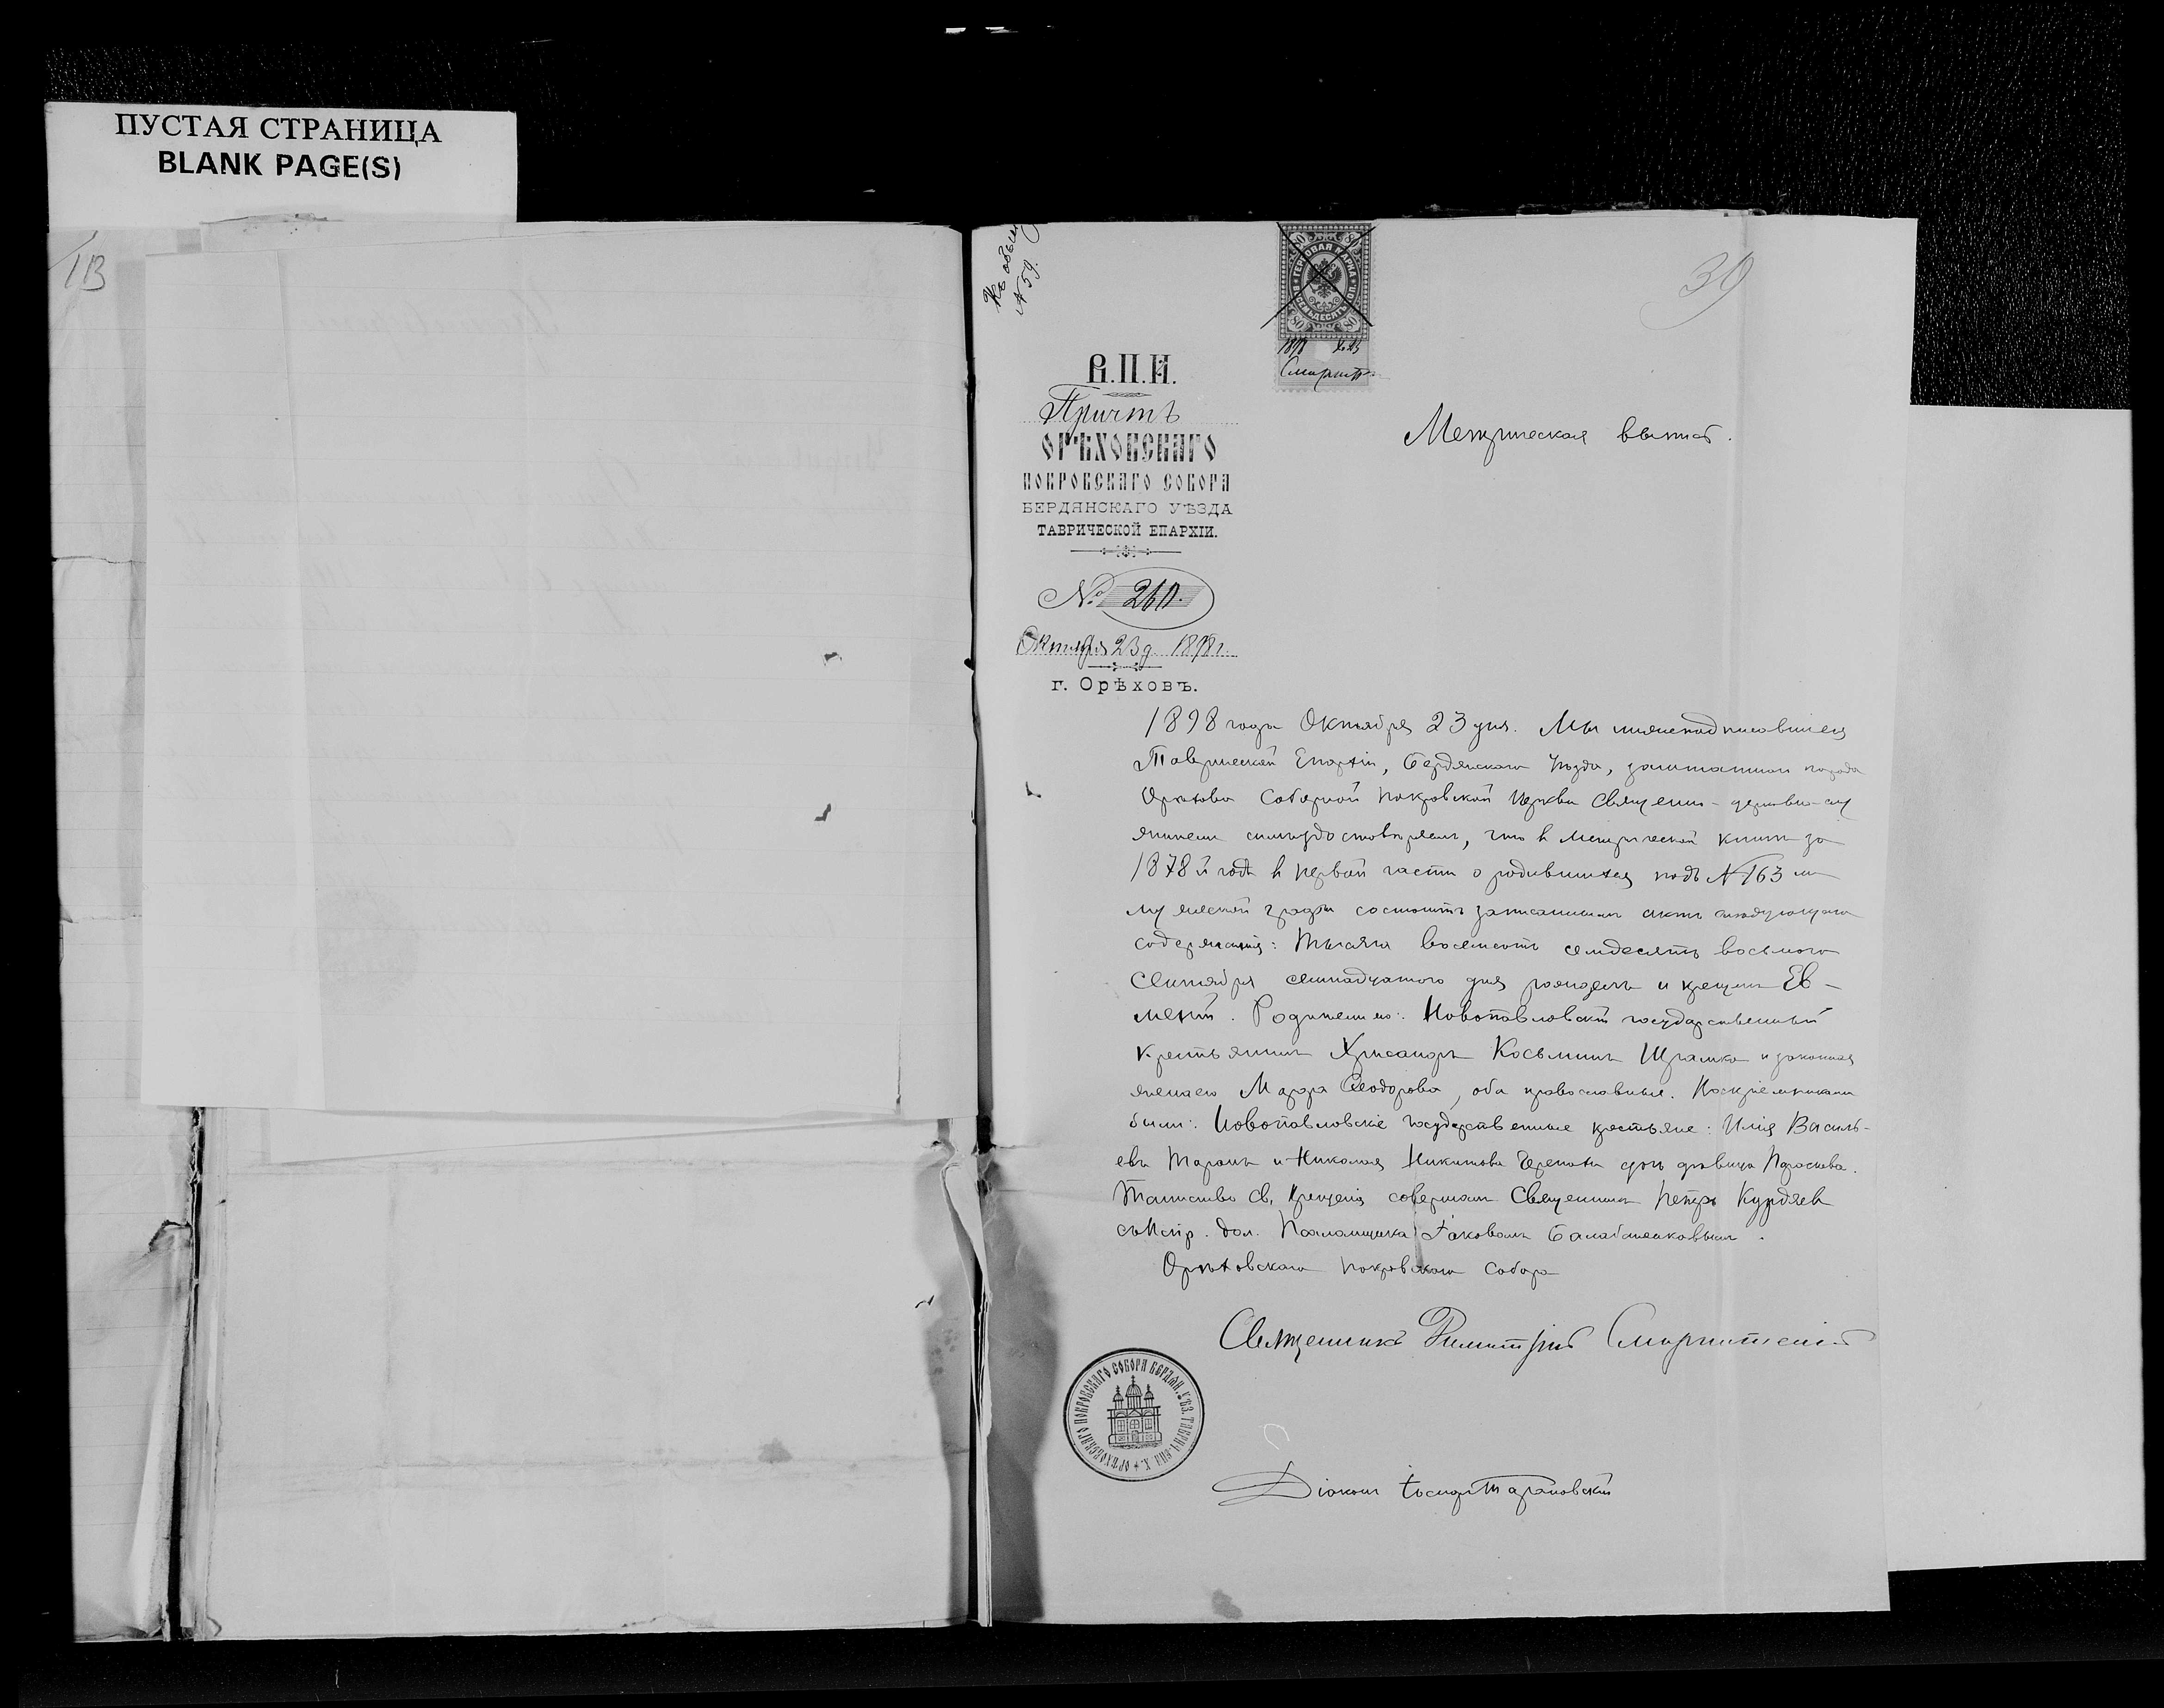 ПУСТАЯ СТРАНИЦА
BLANK PAGE(S)
13
Къ обыск
№ 59.
39
ГЕРБОВАЯ МАРКА ВОСЕМЬДЕСЯТЪ
80 80
80 80
1898
В.П.И.
Причтъ
ОРѢХОВСКАГО
ПОКРОВСКАГО СОБОРА
БЕРДЯНСКАГО УѢЗДА
ТАВРИЧЕСКОЙ ЕПАРХІИ.
№ 260.
Октября 23 д. 1898 г.
г. Орѣховъ.
Метрическая выпись.
1898 года Октября 23 дня. Мы нижеподписавшіеся
Таврической Епархіи, Бердянскаго уѣзда, заштатнаго города
Орѣхова Соборной Покровской Церкви Священно-церковно-слу
жители симъ удостовѣряемъ, что въ метрической книгѣ за
1878й годъ въ первой части о родившихся подъ № 163 мъ
мужеской графы состоитъ записаннымъ актъ слѣдующаго
содержанія: Тысяча восемьсотъ семдесятъ восьмого
Сентября семнадцатого дня рожденъ и крещенъ Ев-
меній. Родители его: Новопавловскій государственный
крестьянинъ Хрисанфъ Косьминъ Шрамко и законная
жена его Марфа Ѳеодорова, оба православные. Воспріемниками
были: Новопавловскіе государственные крестьяне: Илія Василь-
евъ Таранъ и Николая Никитова дочь дѣвица Параскева.
Таинство св. Крещенія совершалъ Священникъ Петръ Курдяев
съ Испр. дол. Псаломщика Іаковомъ
Орѣховскаго Покровскаго Собора
Священникъ Димитрій
ОРѢХОВСКАГО ПОКРОВСКАГО СОБОРА БЕРДЯН. УѢЗ. ТАВРИЧ. ЕПАРХ.
Діаконъ Іосифъ Тарановскій